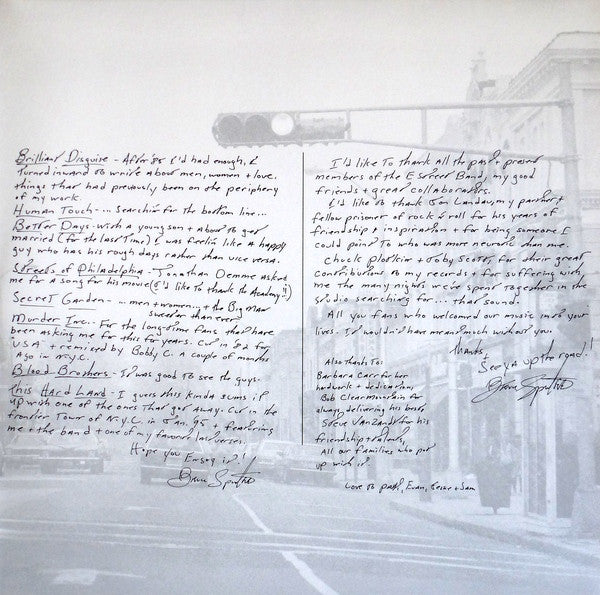 Brilliant Disguise - After '85 I'd had enough, I
turned inward to write about men, women + love.
things that had previously been on the periphery
of my work.
Human Touch - ... searchin' for the bottom line...
Better Days - with a young son + about to get
married (for the last time) I was feelin' like a happy
guy who has his rough days rather than vice versa.
Streets of Philadelphia - Jonathan Demme asked
me for a song for his movie (I'd like to thank the Academy!!)
Secret Garden - ... men + women... + the Big Man
sweeter than ever
Murder Inc. - For the long-time fans that have
been asking me for this for years. Cut in '82 for
"USA" + remixed by Bobby C. a couple of months
ago in N.Y.C.
Blood Brothers - It was good to see the guys.
This Hard Land - I guess this kinda sums it
up with one of the ones that got away. Cut in the
frontier town of N.Y.C. in Jan. 95 + featuring
me + the band + one of my favorite last verses.
Hope you Enjoy it!
Bruce Springsteen
I'd like to thank all the past + present
members of the E Street Band, my good
friends + great collaborators.
I'd like to thank Jon Landau, my partner +
fellow prisoner of rock & roll for his years of
friendship + inspiration + for being someone I
could point to who was more neurotic than me.
Chuck Plotkin + Toby Scott, for their great
contributions to my records + for suffering with
me the many nights we've spent together in the
studio searching for... that sound.
All you fans who welcomed our music into your
lives. It wouldn't have meant much without you.
thanks,
See ya up the road!
Bruce Springsteen
Also thanks to:
Barbara Carr for her
hard work + dedication,
Bob Clearmountain for
always delivering his best
Steve Van Zandt for his
friendship + talent,
All our families who put
up with it.
Love to Patti, Evan, Jessie + Sam